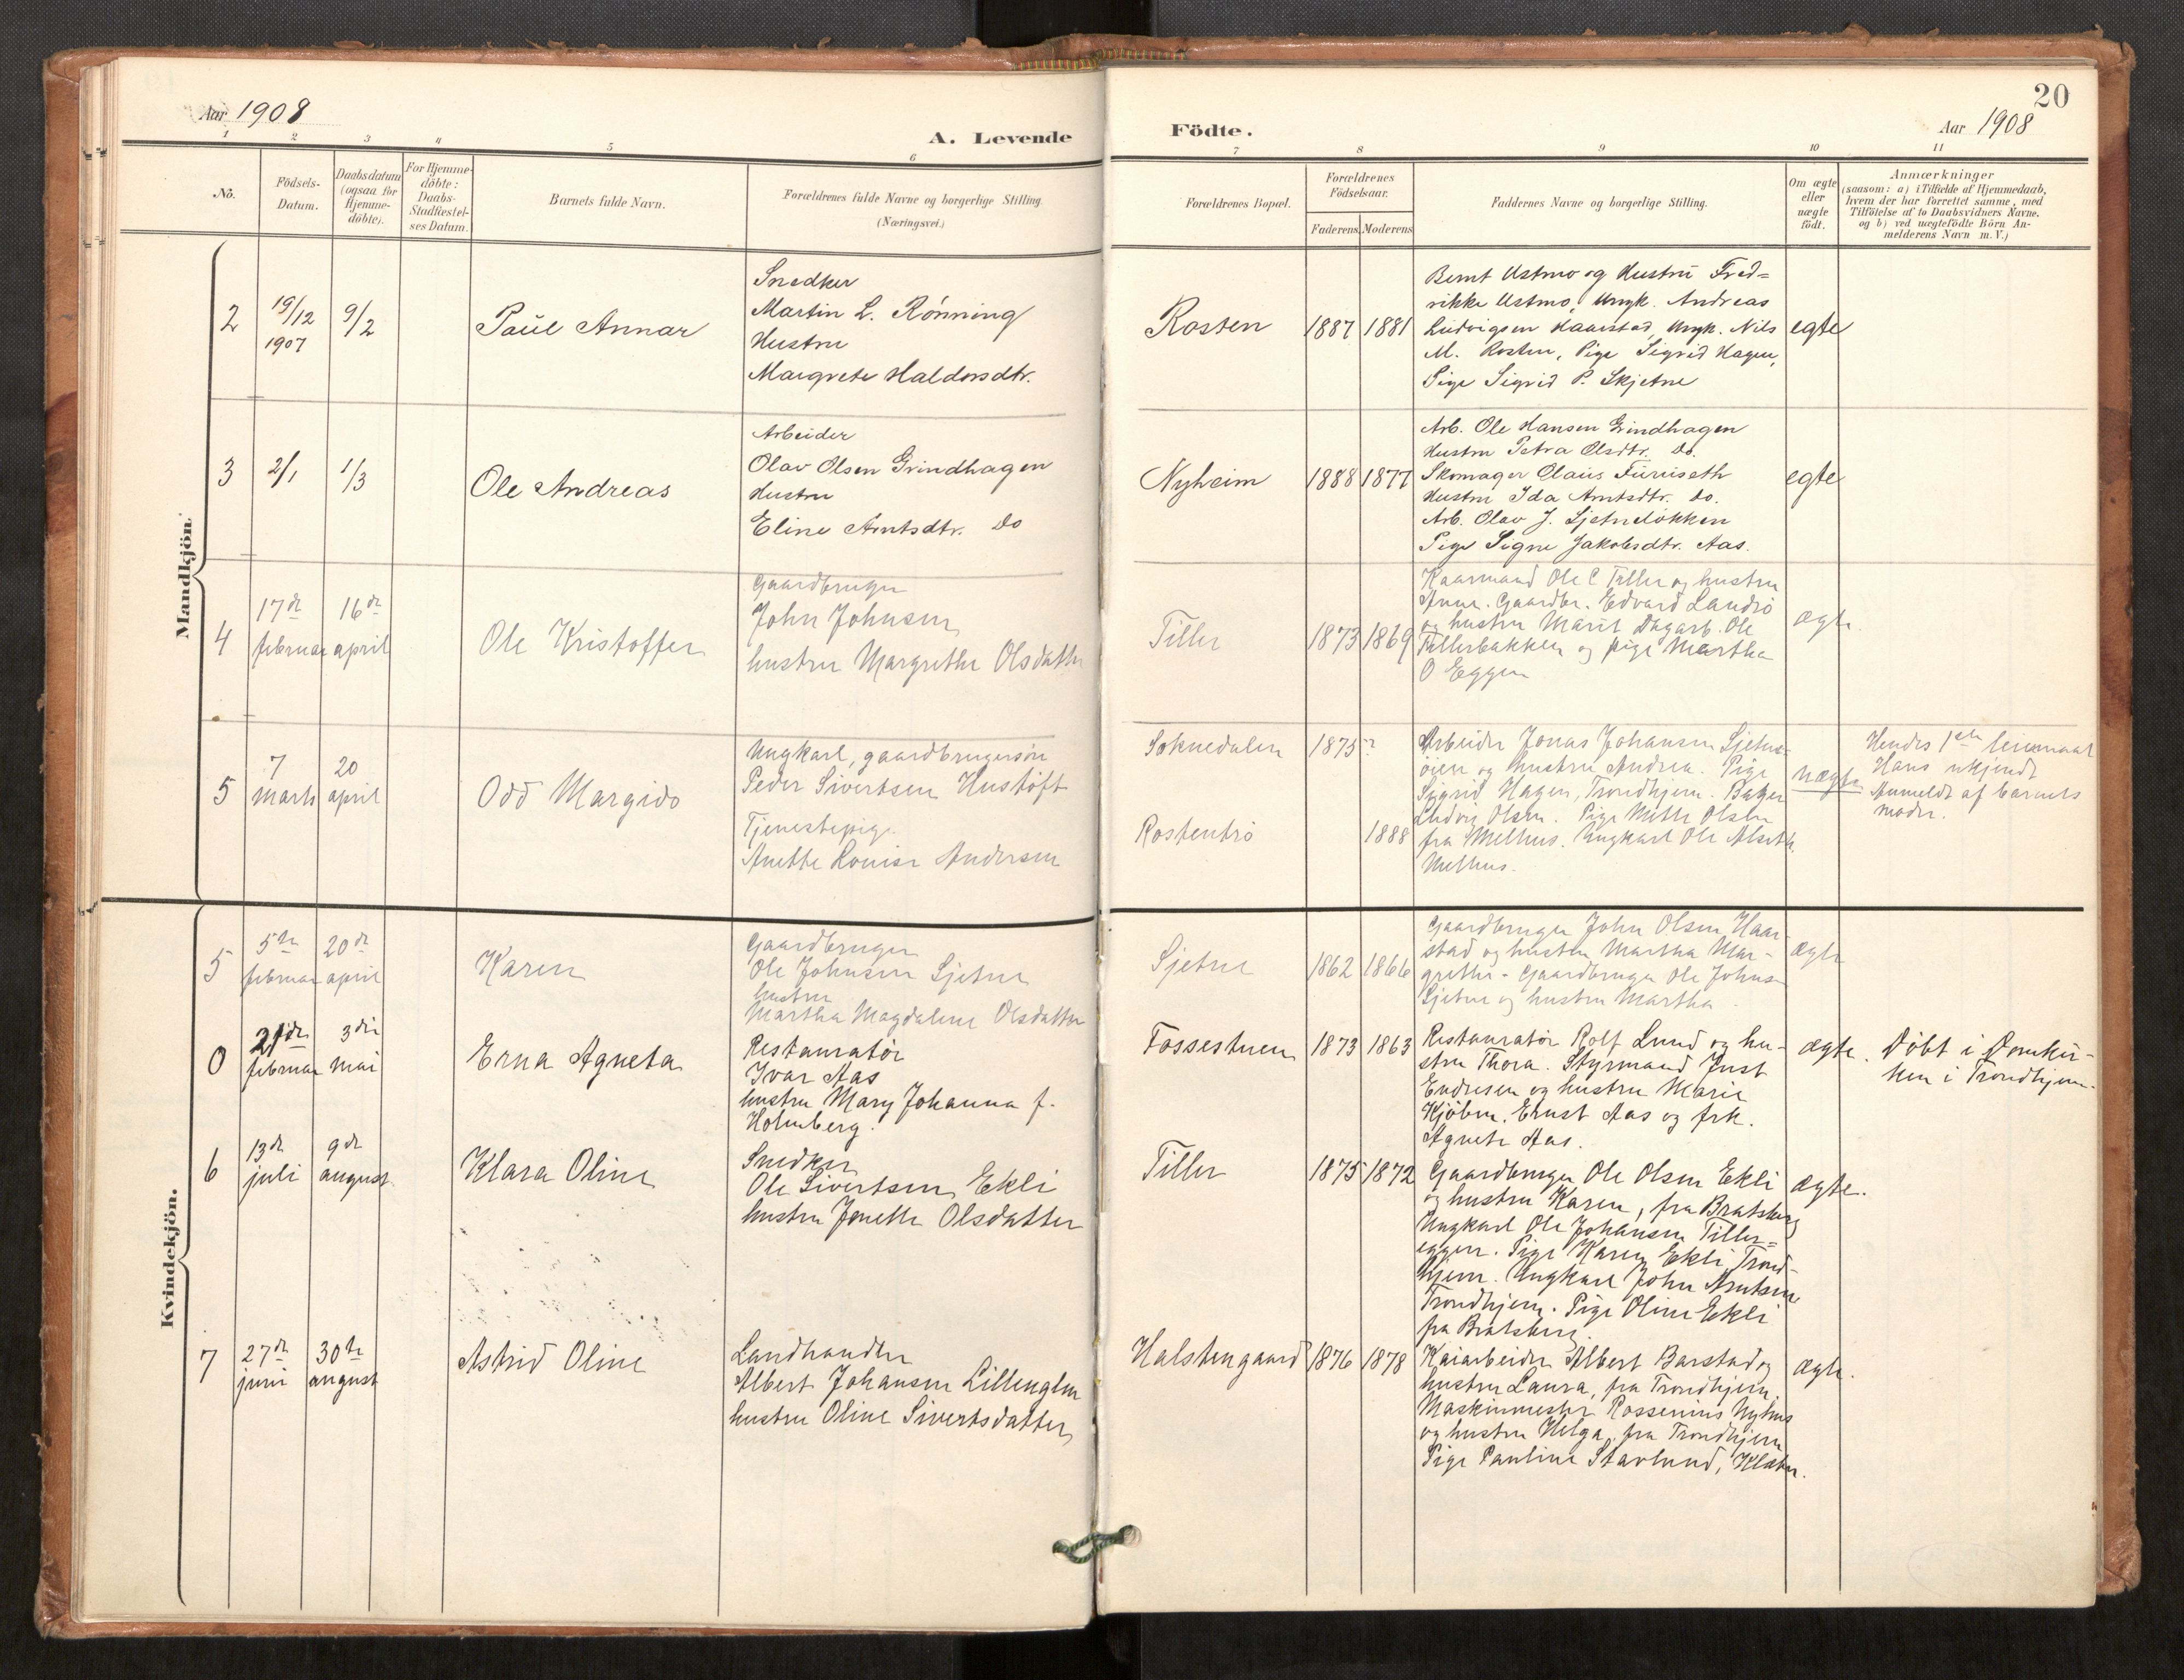 Aar 1908
A. Levende
1 2 3 4 5 6
No.
Födsels-
Datum.
Daabsdatum
(ogsaa for
Hjemme-
döbte).
For Hjemme-
döbte:
Daabs-
Stadfæstel-
ses Datum.
Barnets fulde Navn.
Forældrenes fulde Navne og borgerlige Stilling.
(Næringsvei.)
Mandkjön.
2
19/12
1907
9/2
Paul Annar
Snedker
Martin L. Rønning
Hustru
Margrete Haldorsdtr.
3
2/1
1/3
Ole Andreas
Arbeider
Olav Olsen Grindhagen
Hustru
Eline Arntsdtr. Do
4
17de
februar
16de
april
Ole Kristoffer
Gaardbruger
John Johnsen
hustru Margrethe Olsdatter
5
7
marts
20
april
Odd Margido
Ungkarl, gaardbrugersøn
Peder Sivertsen Hustøft
Tjenestepige
Anette Lovise Andersen
Kvindekjön.
5
5te
februar
20de
april
Karen
Gaardbruger
Ole Johnsen Sjetne
hustru
Martha Magdalene Olsdatter
0
21de
februar
3die
mai
Erna Agneta
Restauratør
Ivar Aas
hustru Mary Johanna f.
Holmberg.
6
13de
juli
9de
august
Klara Oline
Snedker
Ole Sivertsen Ekli
hustru Jonette Olsdatter
7
27de
juni
30te
august
Astrid Oline
Landhandler
Albert Johansen Lillenglen
hustru Oline Sivertsdatter
20
Födte.
Aar 1908
7 8 9 10 11
Forældrenes Bopæl.
Forældrenes
Födselsaar.
Faderens. Moderens.
Faddernes Navne og borgerlige Stilling.
Om ægte
eller
uægte
födt.
Anmærkninger
(saasom: a) i Tilfælde af Hjemmedaab,
hvem der har forrettet samme, med
Tilföielse af to Daabsvidners Navne.
og b) ved uægtefödte Börn An-
melderens Navn m. V.)
Rosten
1887 1881
Bernt Ustmo og Hustru Fred-
rikke Ustmo, Ungk. Andreas
Ludvigsen Haarstad, Ungk. Nils
M. Rosten, Pige Sigrid Hagen,
Pige Sigrid P. Skjetne
egte
Nyheim
1888 1877
Arb. Ole Hansen Grindhagen
Hustru Petra Olsdtr. Do.
Skomager Olaus Furuseth
Hustru Ida Arntsdtr. do.
Arb. Olav J. Sjetneløkken
Pige Signe Jakobsdtr. Aas.
egte
Tiller
1873 1869
Kaarmand Ole C Tiller og hustru
Anne. Gaardbr. Edvard Landrø
og hustru Marit Dagarb. Ole
Tillerbakken og pige Martha
O Eggen
ægte.
Soknedalen
1875?
Rostentrø
1888
Arbeider Jonas Johansen Sjetne-
øien og hustru Andrea. Pige
Sigrid Hagen, Trondhjem. Bager
Ludvig Olsen. Pige Mette Olsen
fra Melhus. Ungkarl Ole Alseth,
Melhus.
uægte
Hendes 1ste leiermaal
Hans ukjendt
Anmeldt af barnets
moder.
Sjetne
1862 1866
Gaardbruger John Olsen Haar-
stad og hustru Martha Mar-
grethe - Gaardbruger Ole Johns.
Sjetne og hustru Martha.
ægte
Fossestuen
1873 1863
Restauratør Rolf Lund og hu-
stru Thora. Styrmand Just
Endresen og hustru Marie
Kjøbm. Ernst Aas og frk.
Agnete Aas.
ægte.
Døbt i Domkir-
ken i Trondhjem.
Tiller
1875 1872
Gaardbruger Ole Olsen Ekli
og hustru Karen, fra Bratsberg
Ungkarl Ole Johansen Tiller-
eggen. Pige Karen Ekli Trond-
hjem. Ungkarl John Arntsen
Trondhjem. Pige Oline Ekli
fra Bratsberg.
ægte.
Halstengaard
1876 1878
Kaiarbeider Albert Barstad og
hustru Laura, fra Trondhjem.
Maskinmester Rossenius Nyhus
og hustru Helga, fra Trondhjem
Pige Pauline Stavlund, Klæbu.
ægte.